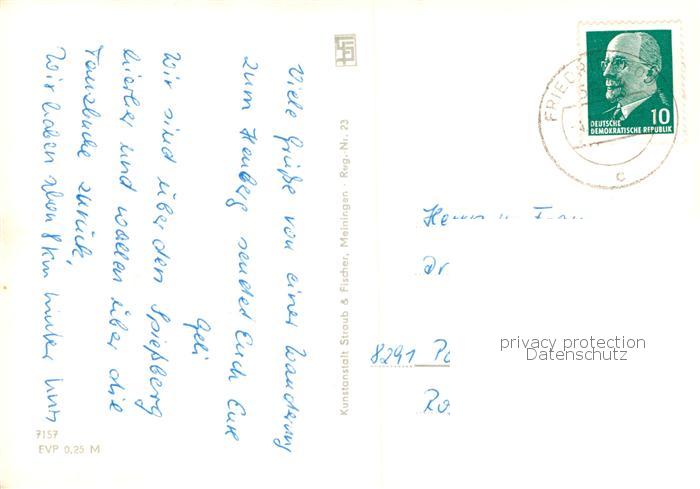 Viele Grüße von einer Wanderung
zum Heuberg sendet Euch Eure
Geli
Wir sind über den Spießberg
hierher und wollen über die
Tanzbuche zurück.
Wir haben schon 8 km hinter uns
7157
EVP 0,25 M
Kunstanstalt Straub & Fischer, Meiningen · Reg.-Nr. 23
FRIEDR
10
DEUTSCHE
DEMOKRATISCHE REPUBLIK
c
Herrn u. Frau
Dr.
8291 Po
Ro
privacy protection
Datenschutz